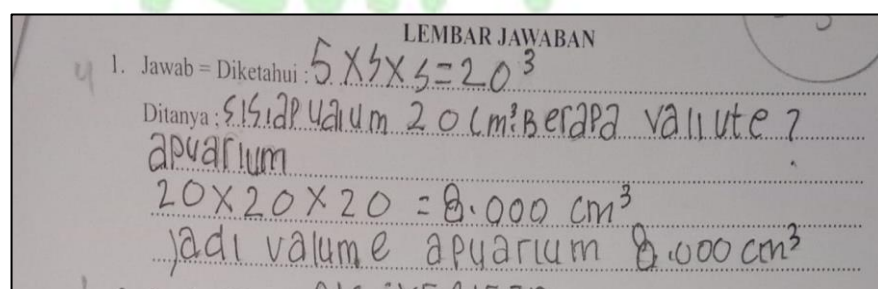 LEMBAR JAWABAN
4 1. Jawab = Diketahui : S X S X S = 20³
Ditanya : Sisi apuarium 20 cm³ Berapa valiute ?
apuarium
20 X 20 X 20 = 8.000 cm³
jadi valume apuarium 8.000 cm³